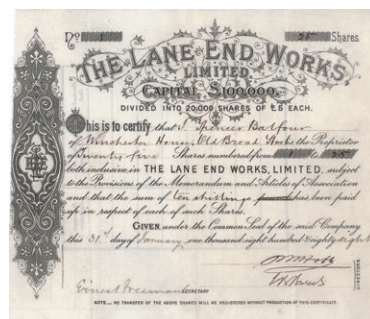 No 1 25 Shares.
THE LANE END WORKS
LIMITED.
CAPITAL £100,000.
DIVIDED INTO 20,000 SHARES OF £5 EACH.
This is to certify that J. Spencer Balfour
of Winchester House, Old Broad is the Proprietor
of Twenty five Shares numbered from 1 to 25
both inclusive in THE LANE END WORKS, LIMITED, subject
to the Provisions of the Memorandum and Articles of Association
and that the sum of Ten shillings has been paid
up in respect of each of such Shares.
GIVEN under the Common Seal of the said Company
this 31st day of January one thousand eight hundred & eighty eight
DIRECTORS.
Ernest Freeman SECRETARY
NOTE.— NO TRANSFER OF THE ABOVE SHARES WILL BE REGISTERED WITHOUT PRODUCTION OF THIS CERTIFICATE.